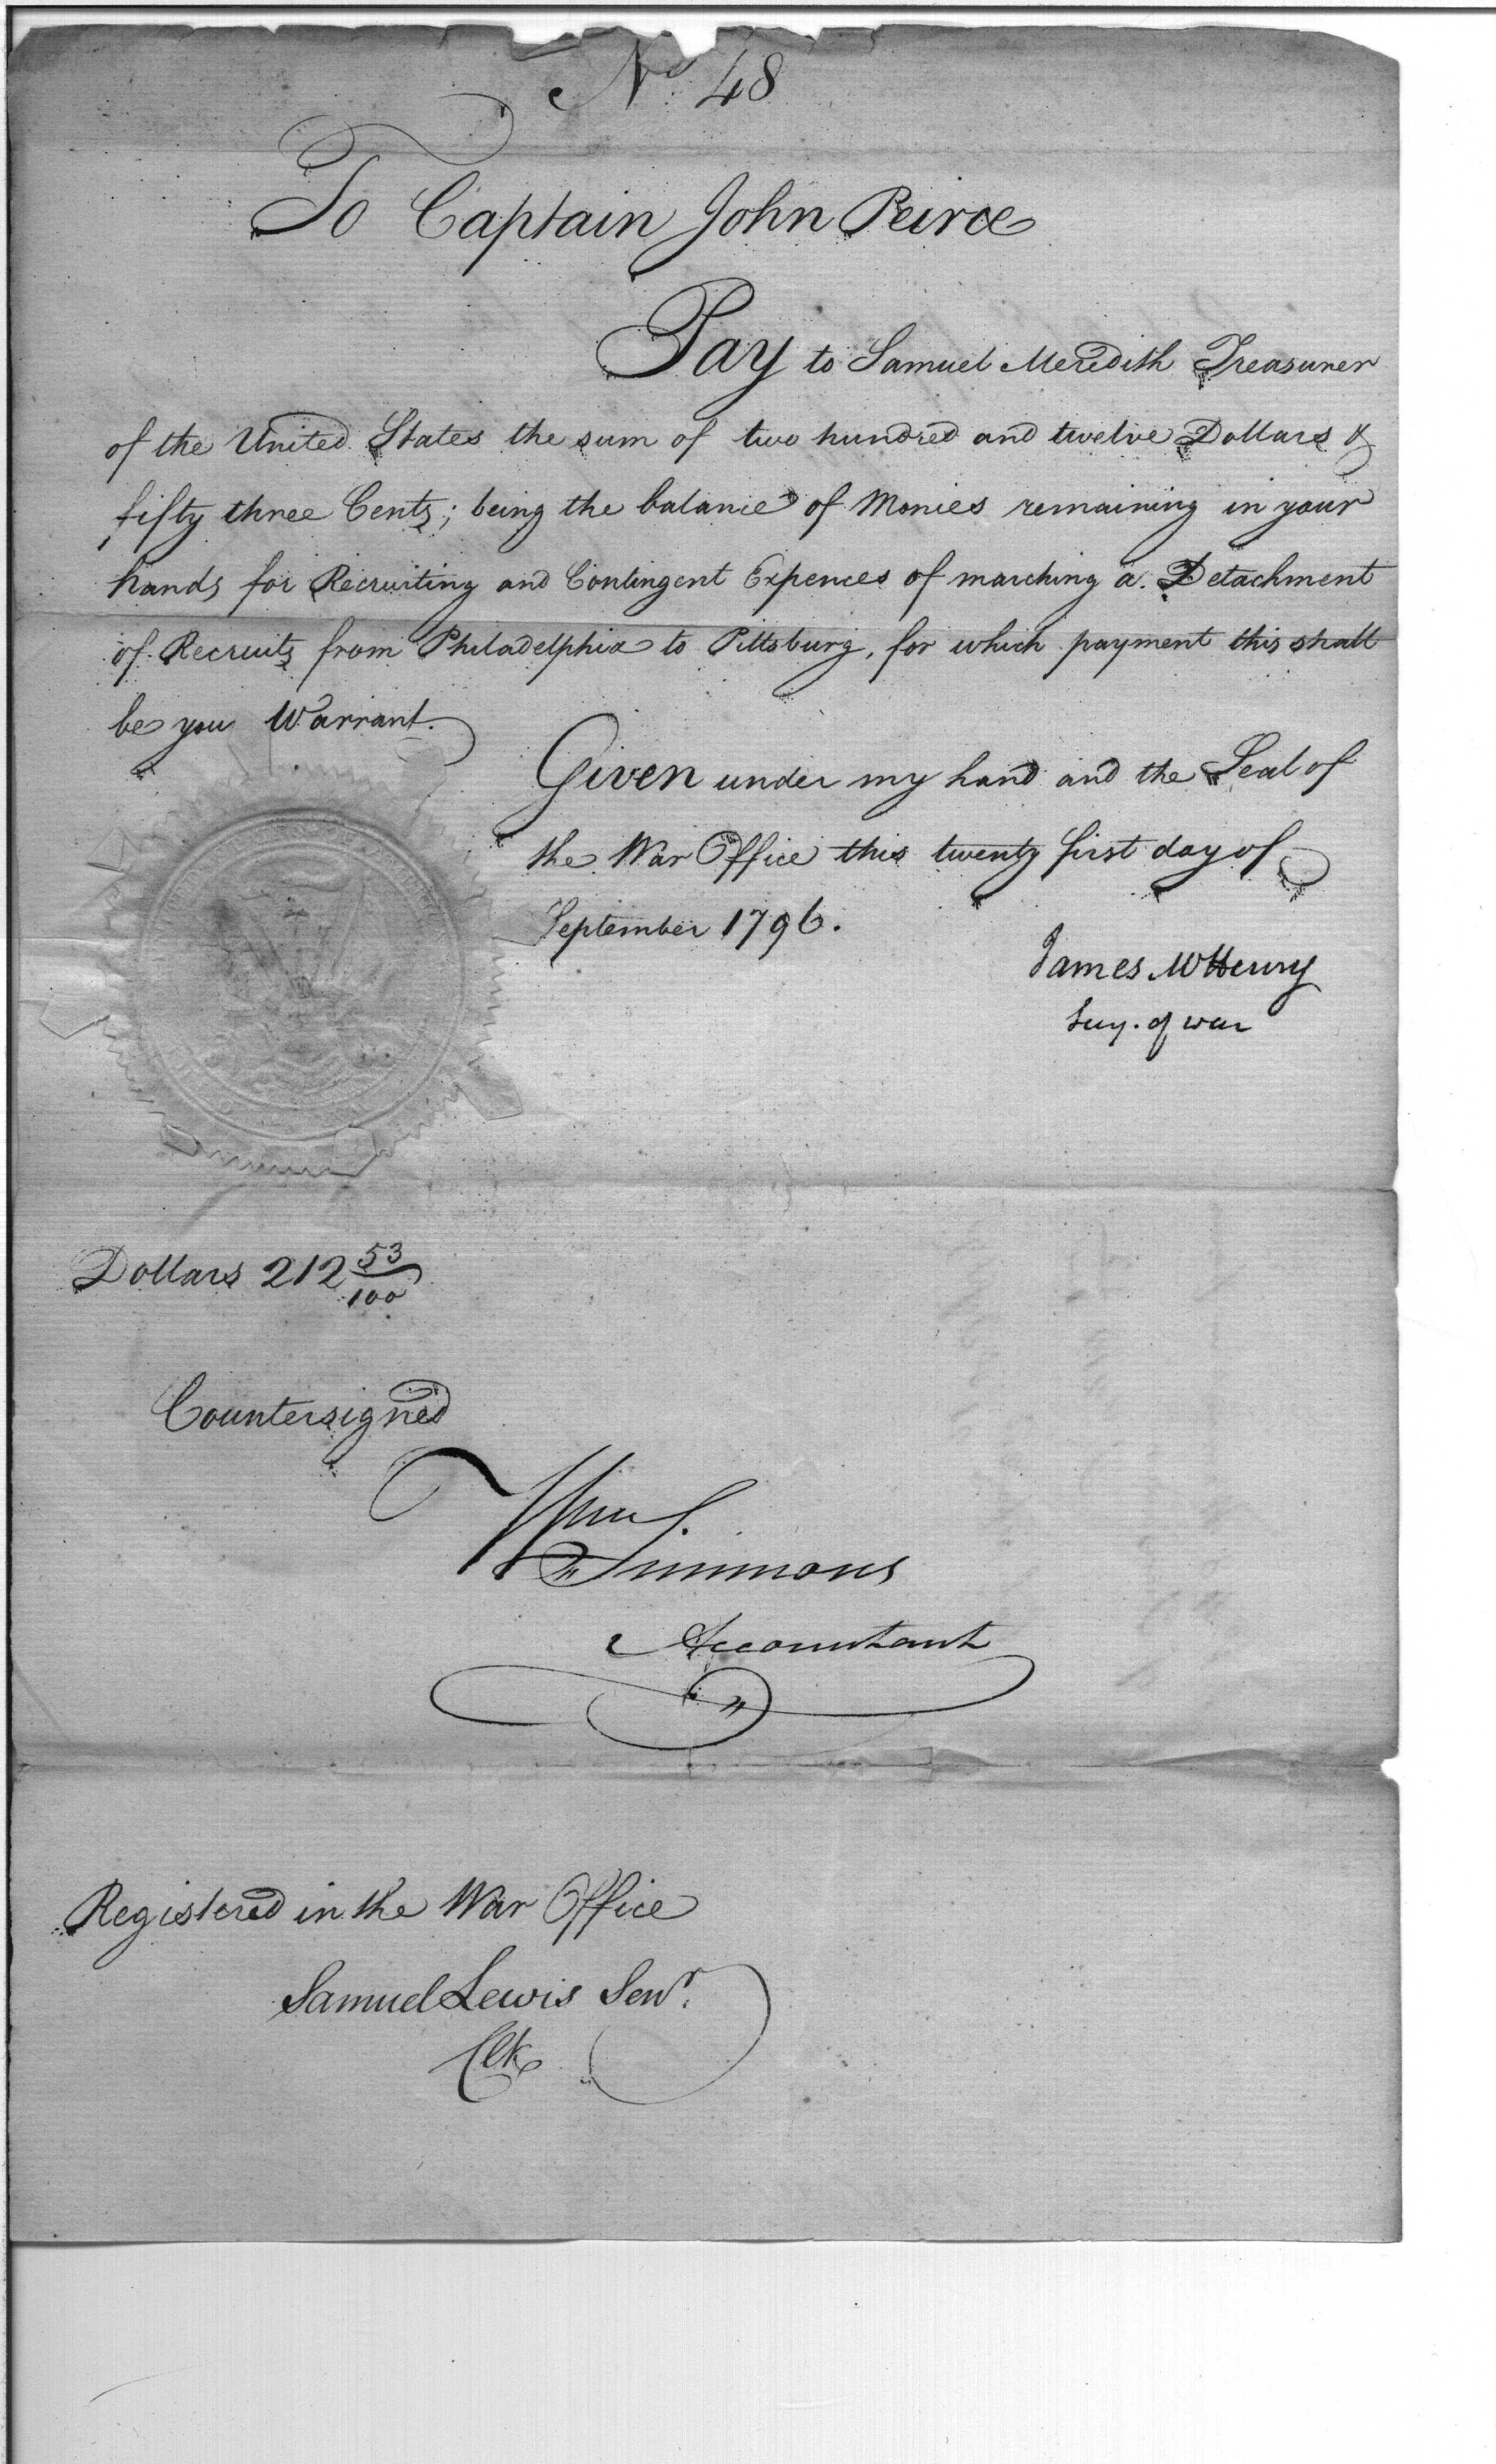 No 48
To Captain John Peirce
Pay to Samuel Meredith Treasurer
of the United States the sum of two hundred and twelve Dollars &
fifty three Cents; being the balance of Monies remaining in your
hands for Recruiting and Contingent Expences of marching a Detachment
of Recruits from Philadelphia to Pittsburg, for which payment this shall
be you Warrant.
Given under my hand and the Seal of
the War Office this twenty first day of
September 1796.
James McHenry
Secy. of war
Dollars 212 53/100
Countersigned
Wm
Simmons
Accountant
Registered in the War Office
Samuel Lewis Senr.
Clk